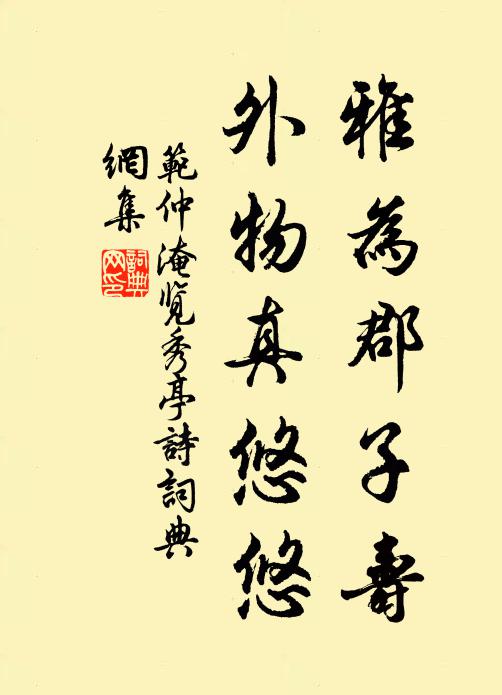 雅為郡子壽
外物真悠悠
範仲淹覽秀亭詩詞典
網集
詞典
网印